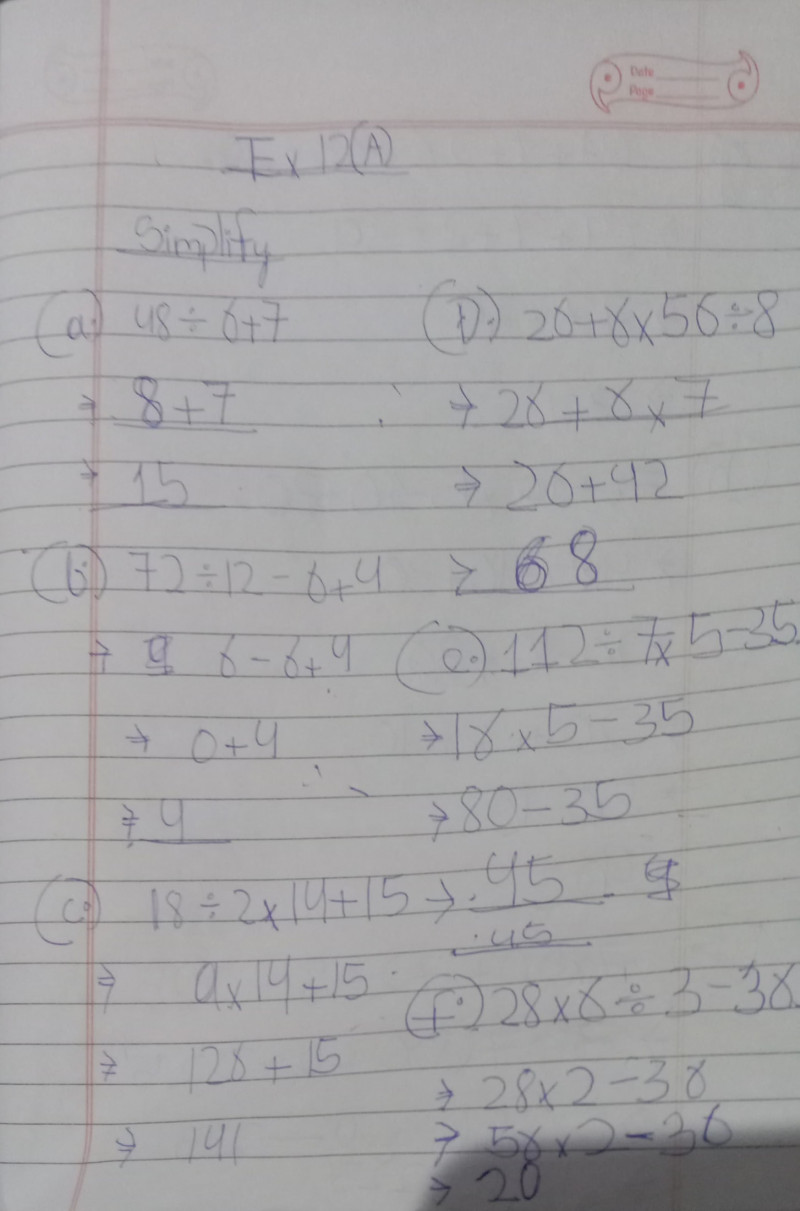 Date
Page
Ex 12(A)
Simplify
(a.) 48÷6+7
⇒ 8+7
⇒ 15
(b.) 72÷12-6+4
⇒ 6-6+4
⇒ 0+4
⇒ 4
(c.) 18÷2×14+15
⇒ 9×14+15
⇒ 126+15
⇒ 141
(D.) 26+6×56÷8
⇒ 26+6×7
⇒ 26+42
⇒ 68
(e.) 112÷7×5-35
⇒ 16×5-35
⇒ 80-35
⇒ 45
45
(f.) 28×6÷3-36
⇒ 28×2-36
⇒ 56×2-36
⇒ 20